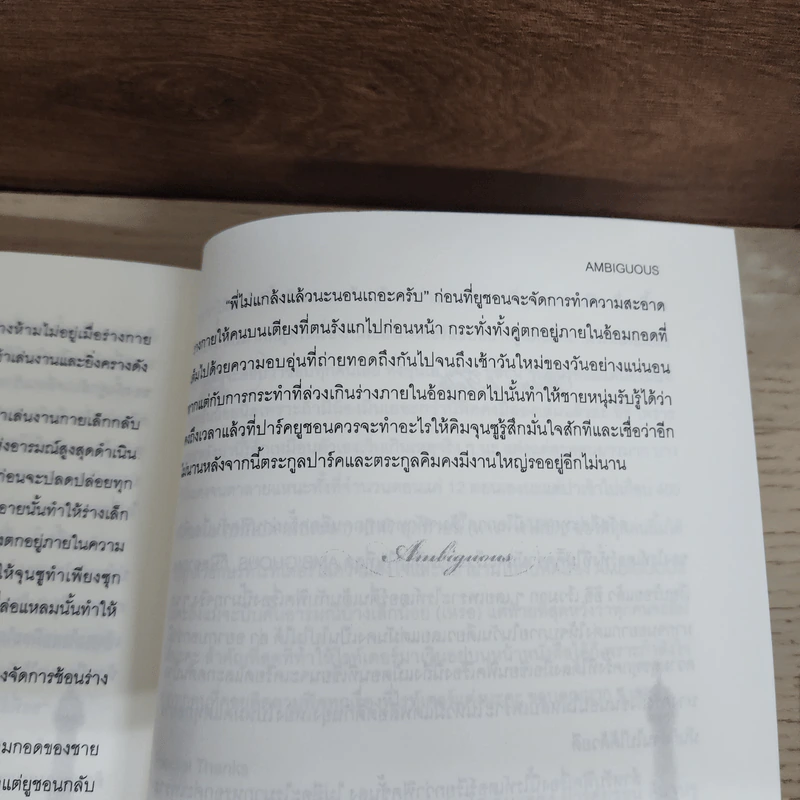 างห้ามไม่อยู่เมื่อร่างกาย
เล่นงานและยิ่งครางดัง
เล่นงานกายเล็กกลับ
อารมณ์สูงสุดดำเนิน
ก่อนจะปลดปล่อยทุก
อายนั้นทำให้ร่างเล็ก
งตกอยู่ภายในความ
ให้จุนซูทำเพียงซุก
ล่อแหลมนั้นทำให้
งจัดการช้อนร่าง
มกอดของชาย
แต่ยูชอนกลับ
AMBIGUOUS
“พี่ไม่แกล้งแล้วนะนอนเถอะครับ” ก่อนที่ยูชอนจะจัดการทำความสะอาด
างกายให้คนบนเตียงที่ตนรังแกไปก่อนหน้า กระทั่งทั้งคู่ตกอยู่ภายในอ้อมกอดที่
ต็มไปด้วยความอบอุ่นที่ถ่ายทอดถึงกันไปจนถึงเช้าวันใหม่ของวันอย่างแน่นอน
ากแต่กับการกระทำที่ล่วงเกินร่างภายในอ้อมกอดไปนั้นทำให้ชายหนุ่มรับรู้ได้ว่า
งถึงเวลาแล้วที่ปาร์คยูชอนควรจะทำอะไรให้คิมจุนซูรู้สึกมั่นใจสักทีและเชื่อว่าอีก
ม่นานหลังจากนี้ตระกูลปาร์คและตระกูลคิมคงมีงานใหญ่รออยู่อีกไม่นาน
Ambiguous